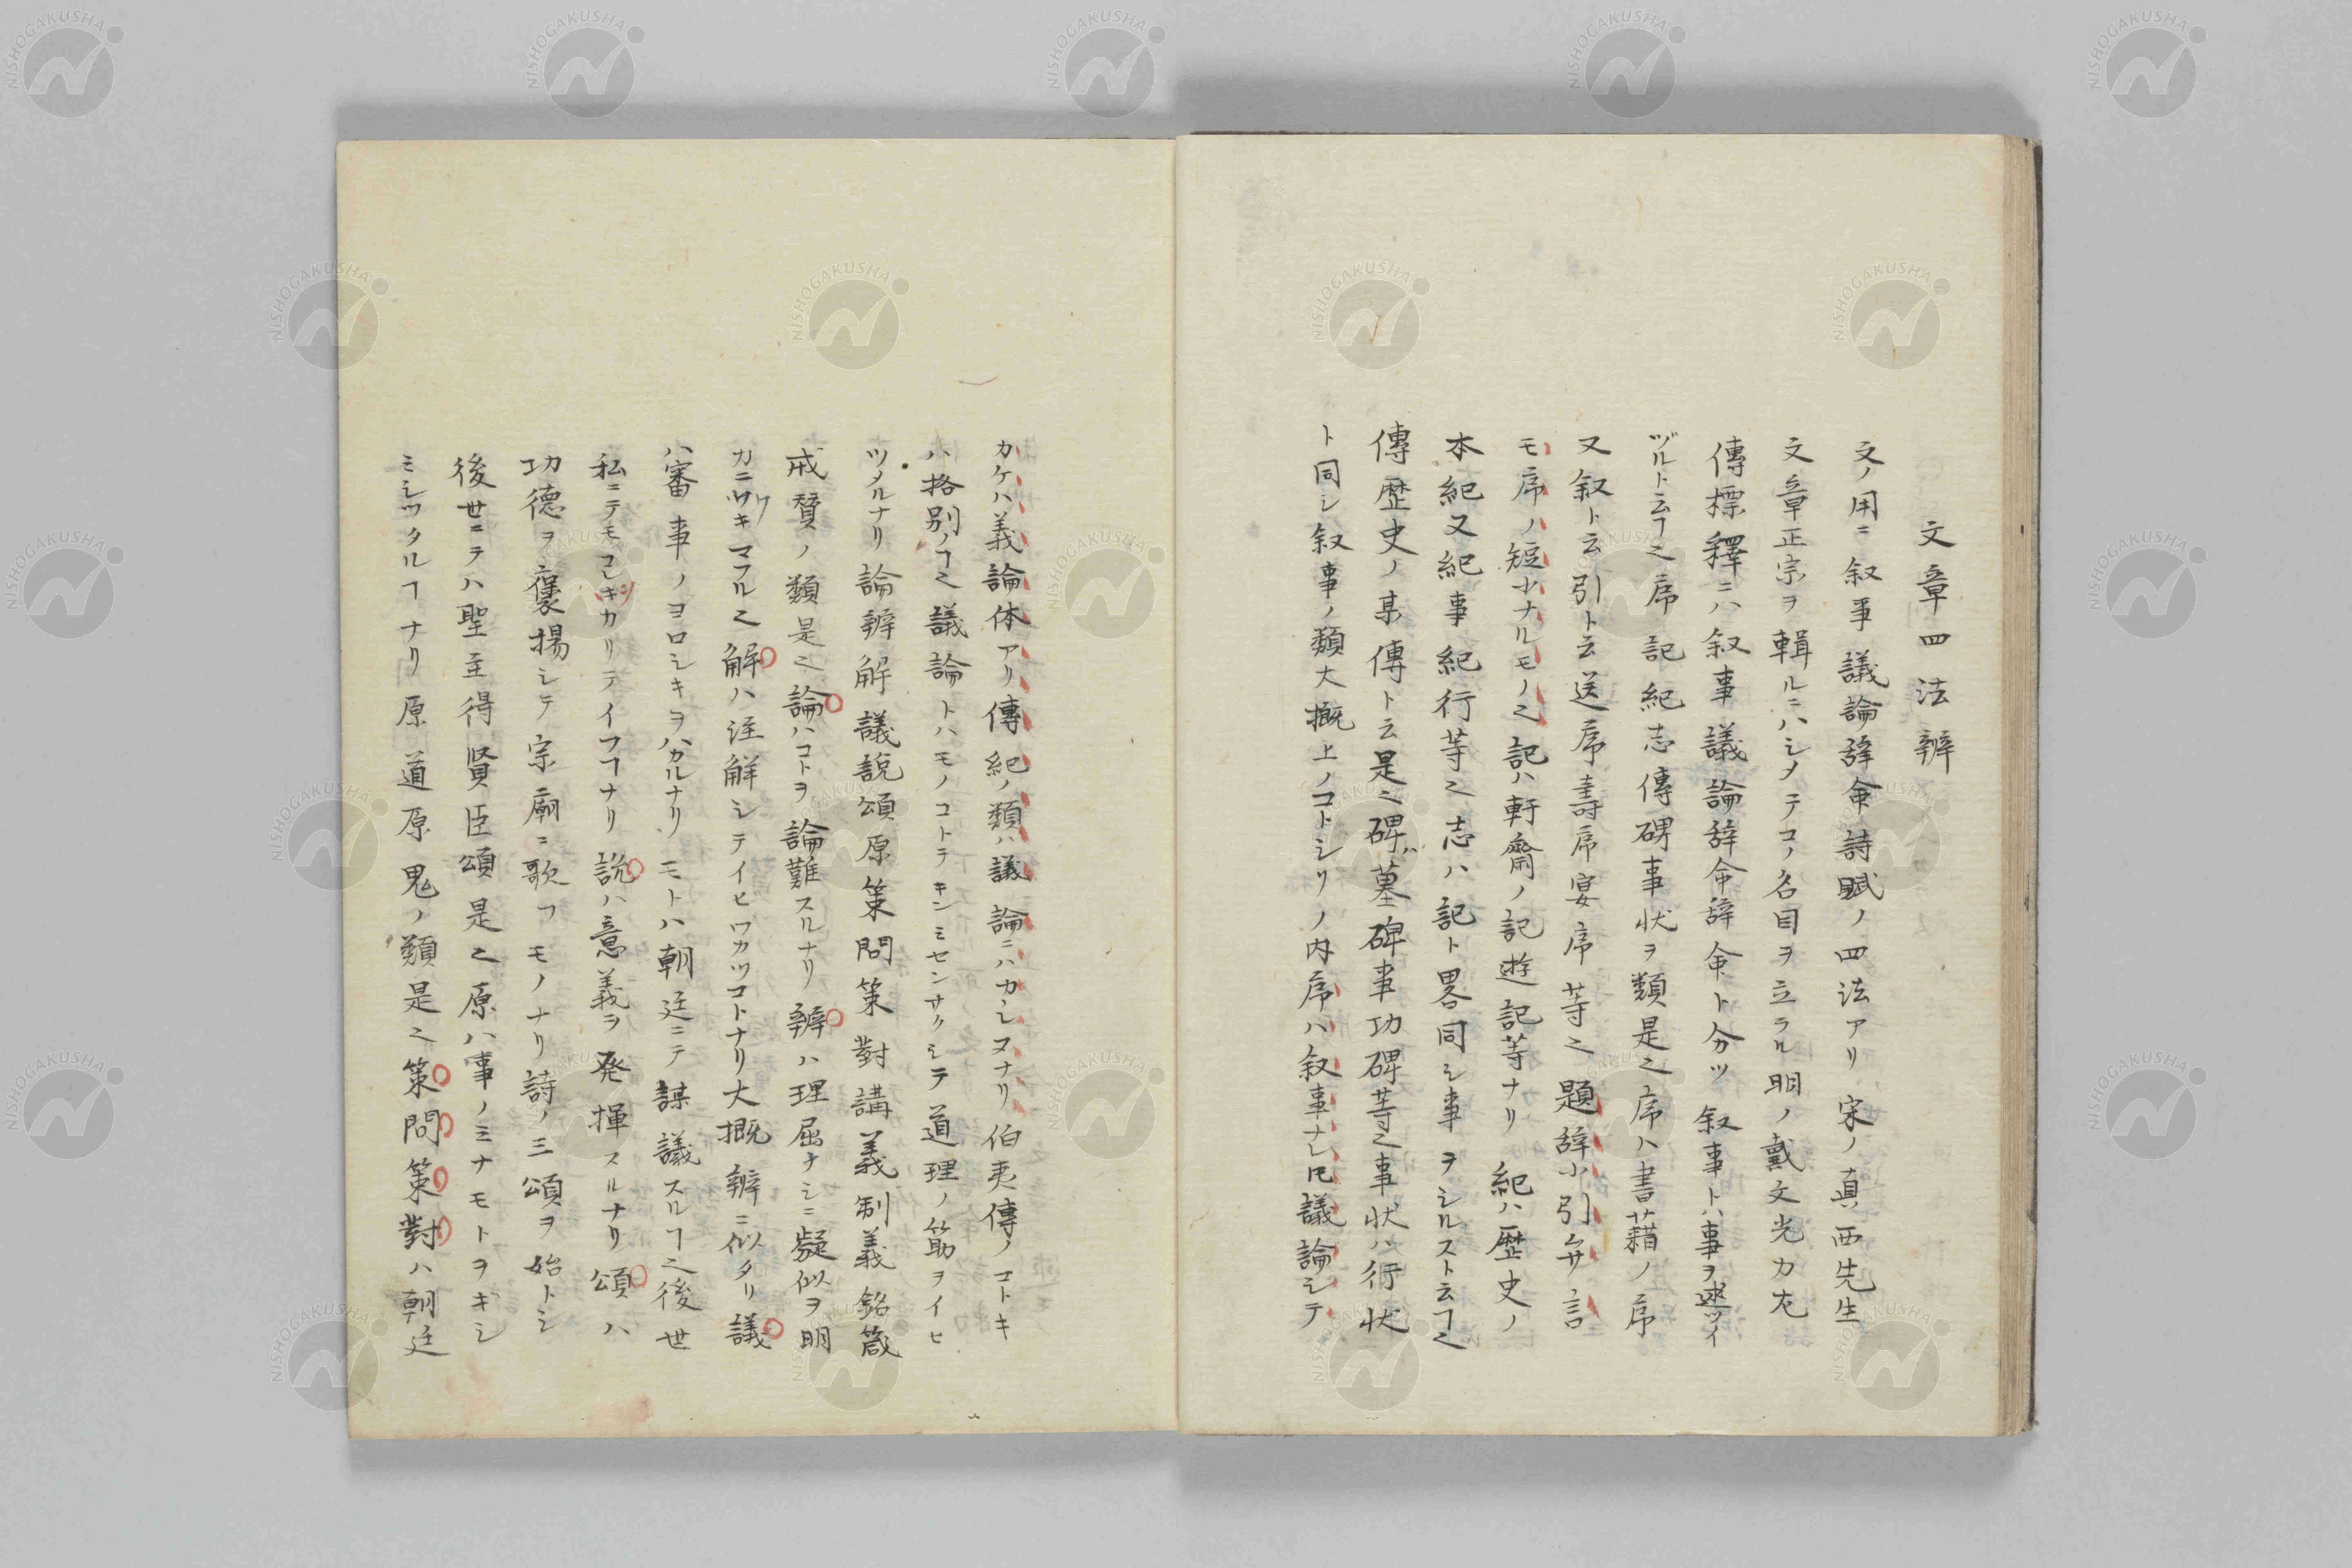 文章四法辨
文ノ用ニ叙事議論辞命詩賦ノ四法アリ宋ノ真西先生
文章正宗ヲ輯ルニハシメテコノ名目ヲ立ラル明ノ戴文光カ左
傳標釋ニハ叙事議論辞命辞命ト分ツ叙事トハ事ヲ逑ツイ
ヅルト云ヿ之序記紀志傳碑事状ヲ類是之序ハ書藉ノ序
又叙ト云引ト云送序壽序宴序等之題辞小引弁言
モ序ノ短少ナルモノ之記ハ軒齋ノ記遊記等ナリ紀ハ歴史ノ
本紀又紀事紀行等之志ハ記ト畧同シ事ヲシルスト云ヿ之
傳歴史ノ某傳ト云是之碑ハ墓碑事功碑等之事状ハ行状
ト同シ叙事ノ類大概上ノコトシリノ内序ハ叙事ナレ𪜈議論シテ
カケハ義論体アリ傳紀ノ類ハ議論ニハカレヌナリ伯夷傳ノコトキ
ハ格別ノヿ之議論トハモノコトヲキンミセンサクシテ道理ノ筋ヲイヒ
ツメルナリ論辨解議説頌原策問策對講義制義銘箴
戒賛ノ類是之論ハコトヲ論難スルナリ辨ハ理屈ナシニ疑似ヲ明
カニワキマフル之解ハ注解シテイヒワカツコトナリ大概辨ニ似タリ議
ハ審事ノヨロシキヲハカルナリモトハ朝廷ニテ謀議スルヿ之後世
私ニテモコレキカリテイフヿナリ説ハ意義ヲ発揮スルナリ頌ハ
功徳ヲ褒揚シテ宗廟ニ歌フモノナリ詩ノ三頌ヲ始トシ
後世ニヲハ聖主得賢臣頌是之原ハ事ノミナモトヲギシ
ミシツタルヿナリ原道原鬼ノ類是之策問策對ハ朝廷
NISHOGAKUSHA